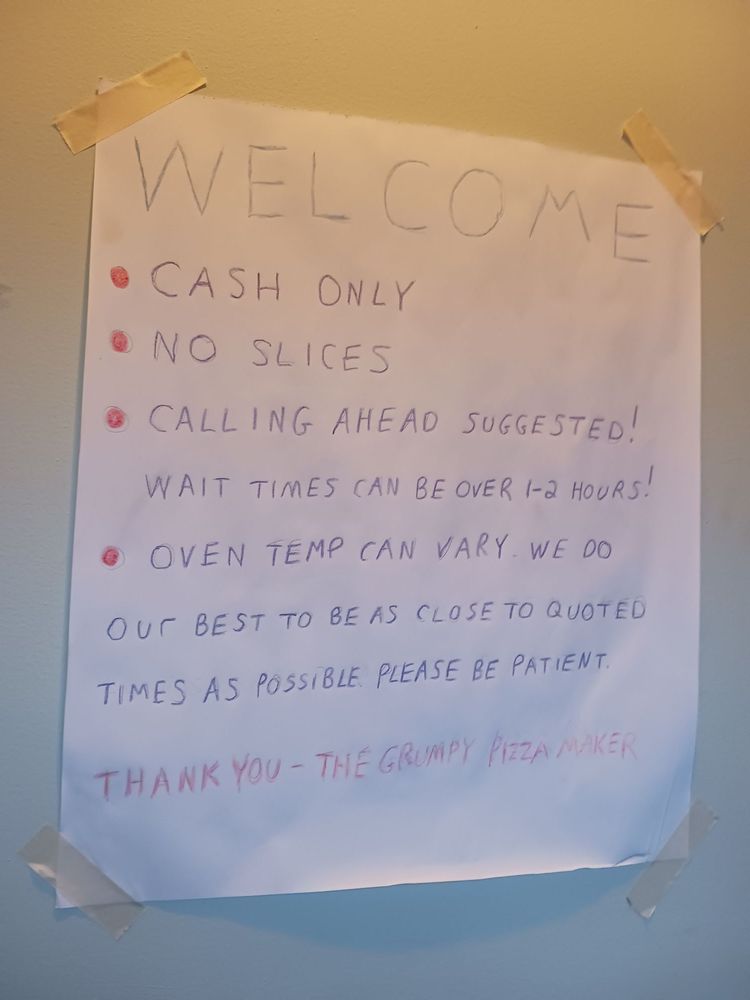 WELCOME
• CASH ONLY
• NO SLICES
• CALLING AHEAD SUGGESTED!
WAIT TIMES CAN BE OVER 1-2 HOURS!
• OVEN TEMP CAN VARY. WE DO
OUR BEST TO BE AS CLOSE TO QUOTED
TIMES AS POSSIBLE. PLEASE BE PATIENT.
THANK YOU - THE GRUMPY PIZZA MAKER